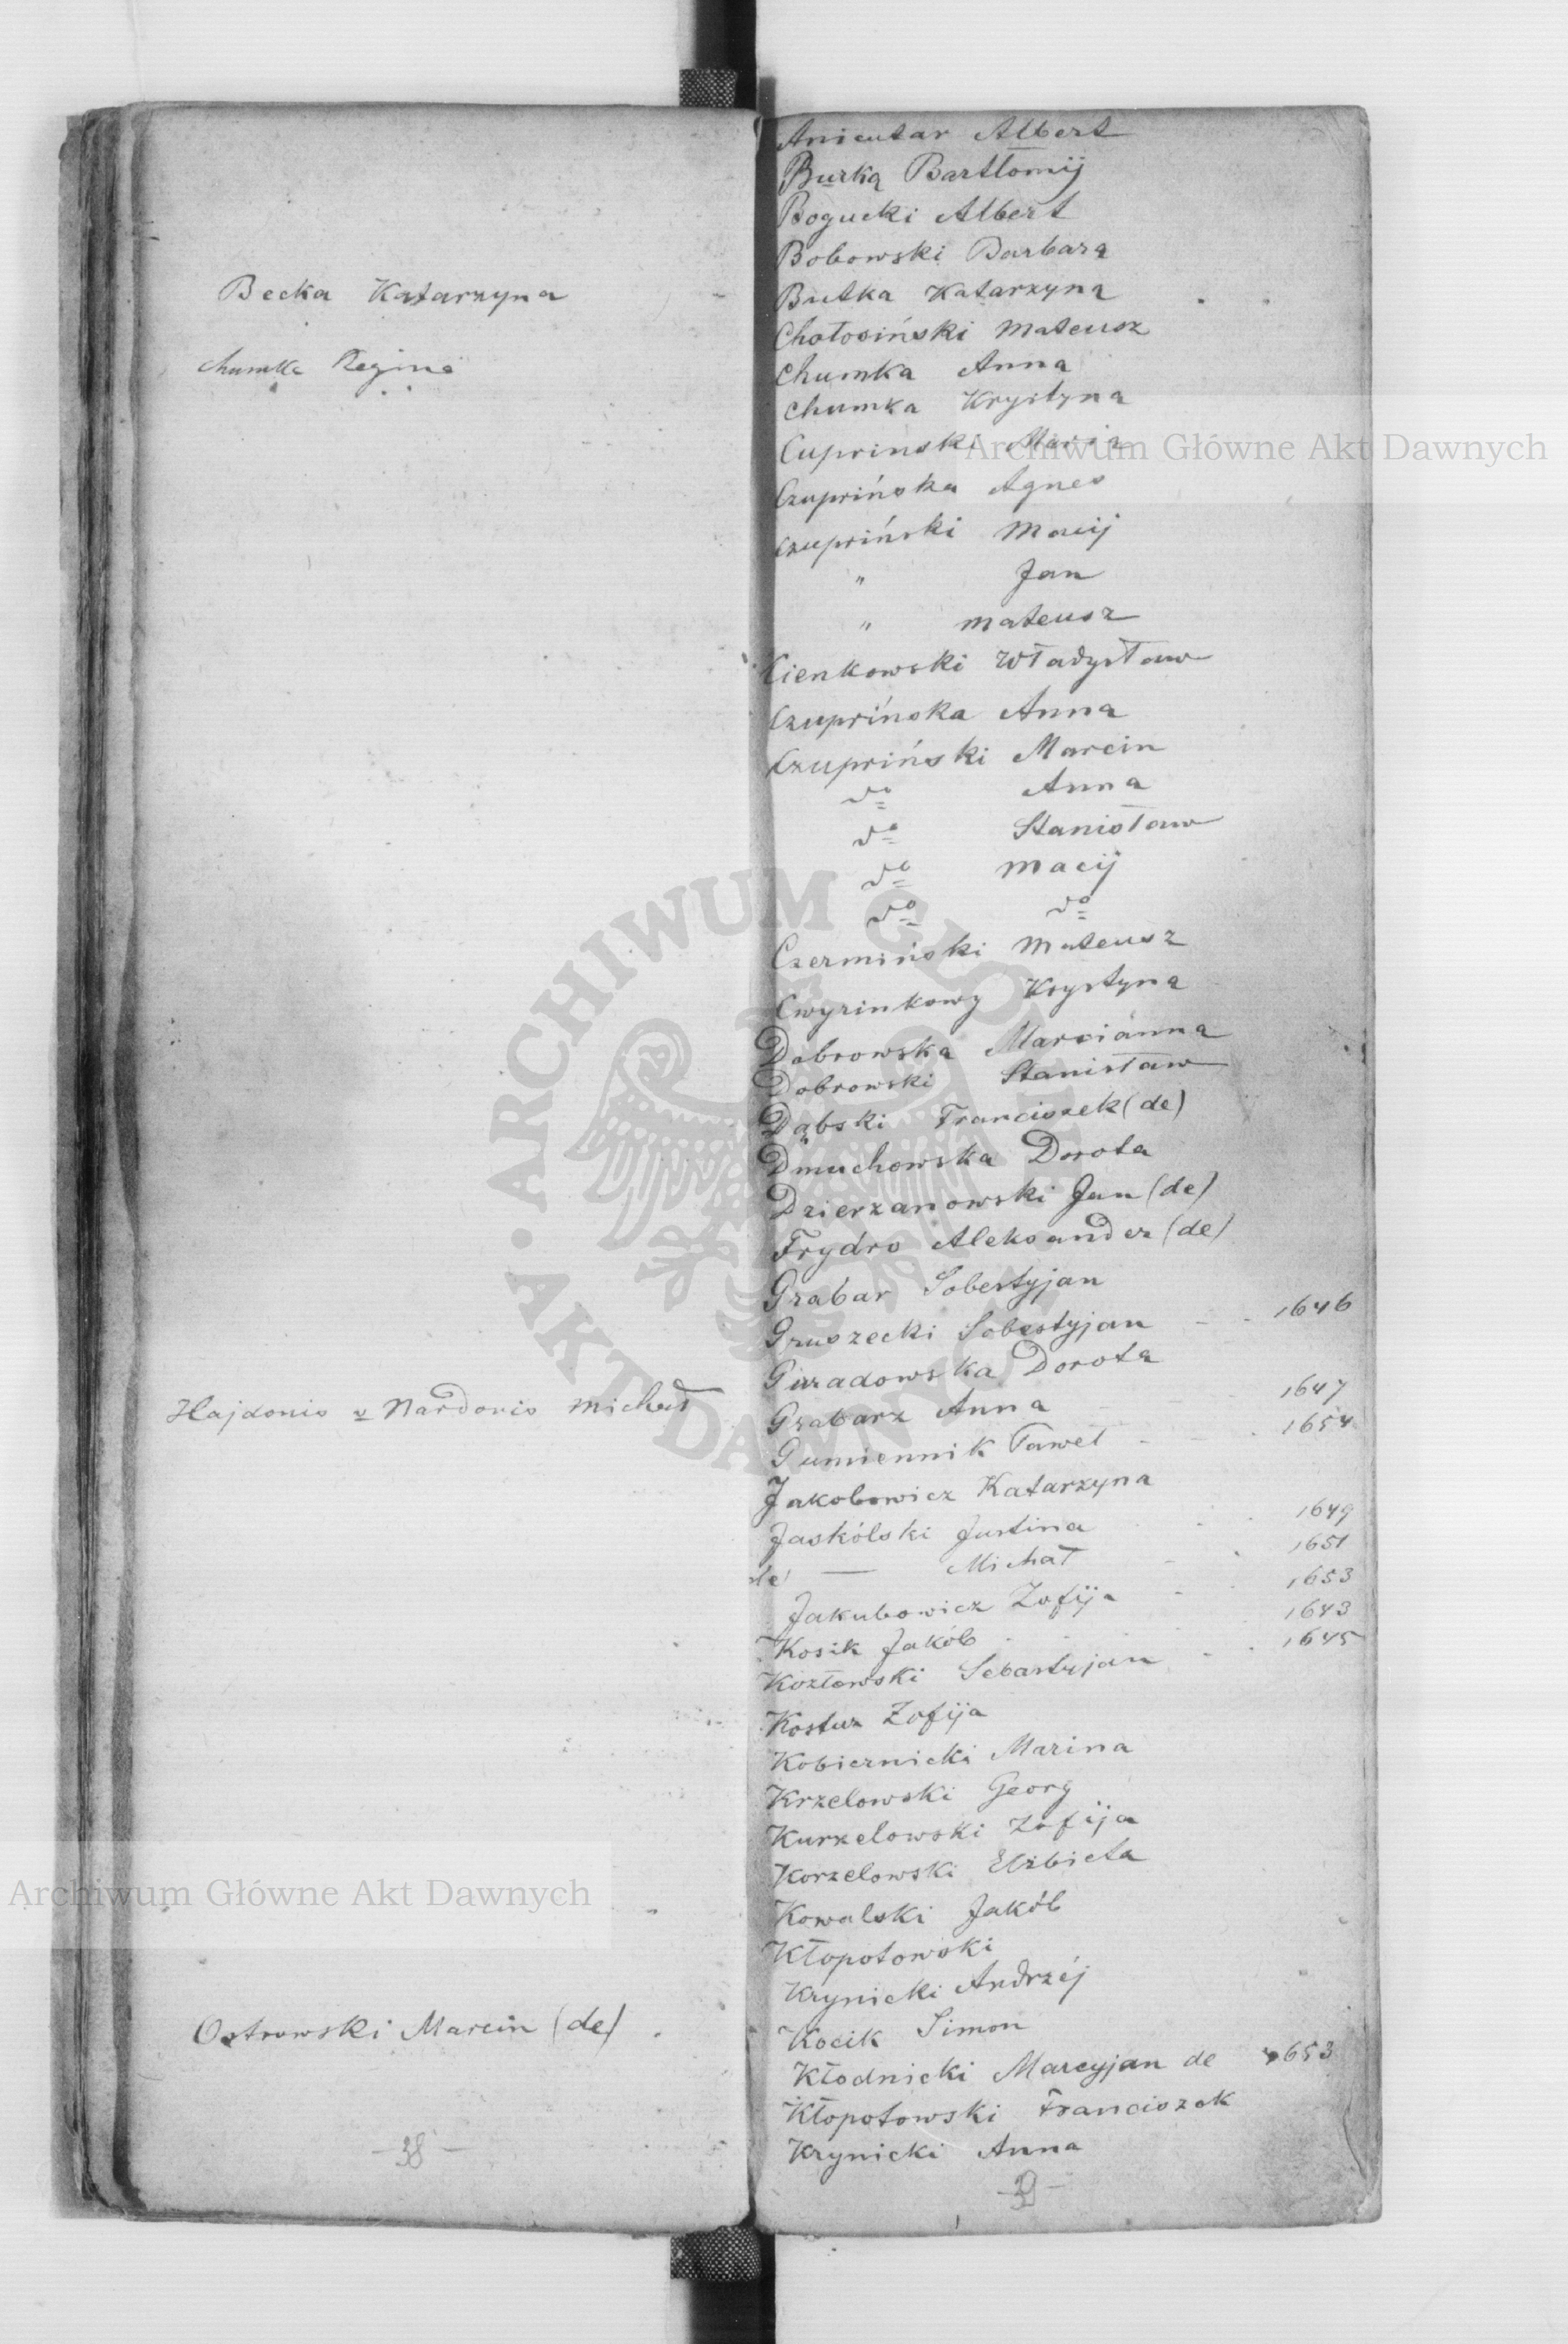 Becka Katarzyna
Chumka Regina
Hajdonis v Nardonis Michał
Ostrowski Marcin (de)
38
Anicutar Albert
Burka Bartłomij
Bogucki Albert
Bobowski Barbara
Butka Katarzyna
Chołosiński Mateusz
Chumka Anna
Chumka Krystyna
Cuprinski Maria
Czuprińska Agnes
Czupriński Macij
" Jan
" Mateusz
Cienkowski Władysław
Czuprińska Anna
Czupriński Marcin
do Anna
do Stanisław
do Macij
do do
Czermiński Mateusz
Cwyrinkowy Krystyna
Dobrowska Marcianna
Dobrowski Stanisław
Dąbski Franciszek (de)
Dmuchowska Dorota
Dzierzanowski Jan (de)
Frydro Aleksander (de)
Grabar Sobestyjan
Gruszecki Sobestyjan - - 1646
Guzadowska Dorota
Grabarz Anna 1647
Gumiennik Paweł - - 1654
Jakobowicz Katarzyna
Jaskólski Justina - - 1649
de — Michał - - 1651
Jakubowicz Zofija - - 1653
Kosik Jakób - - 1643
Kozłowski Sebastyjan - - 1645
Kostur Zofija
Kobiernicki Marina
Krzelowski Georg
Kurzelowski Zofija
Korzelowski Elżbieta
Kowalski Jakób
Kłopotowski
Krynicki Andrzéj
Kocik Simon
Kłodnicki Marcyjan de 1653
Kłopotowski Franciszek
Krynicki Anna
39
Archiwum Główne Akt Dawnych
Archiwum Główne Akt Dawnych
ARCHIWUM GŁÓWNE • AKT DAWNYCH •